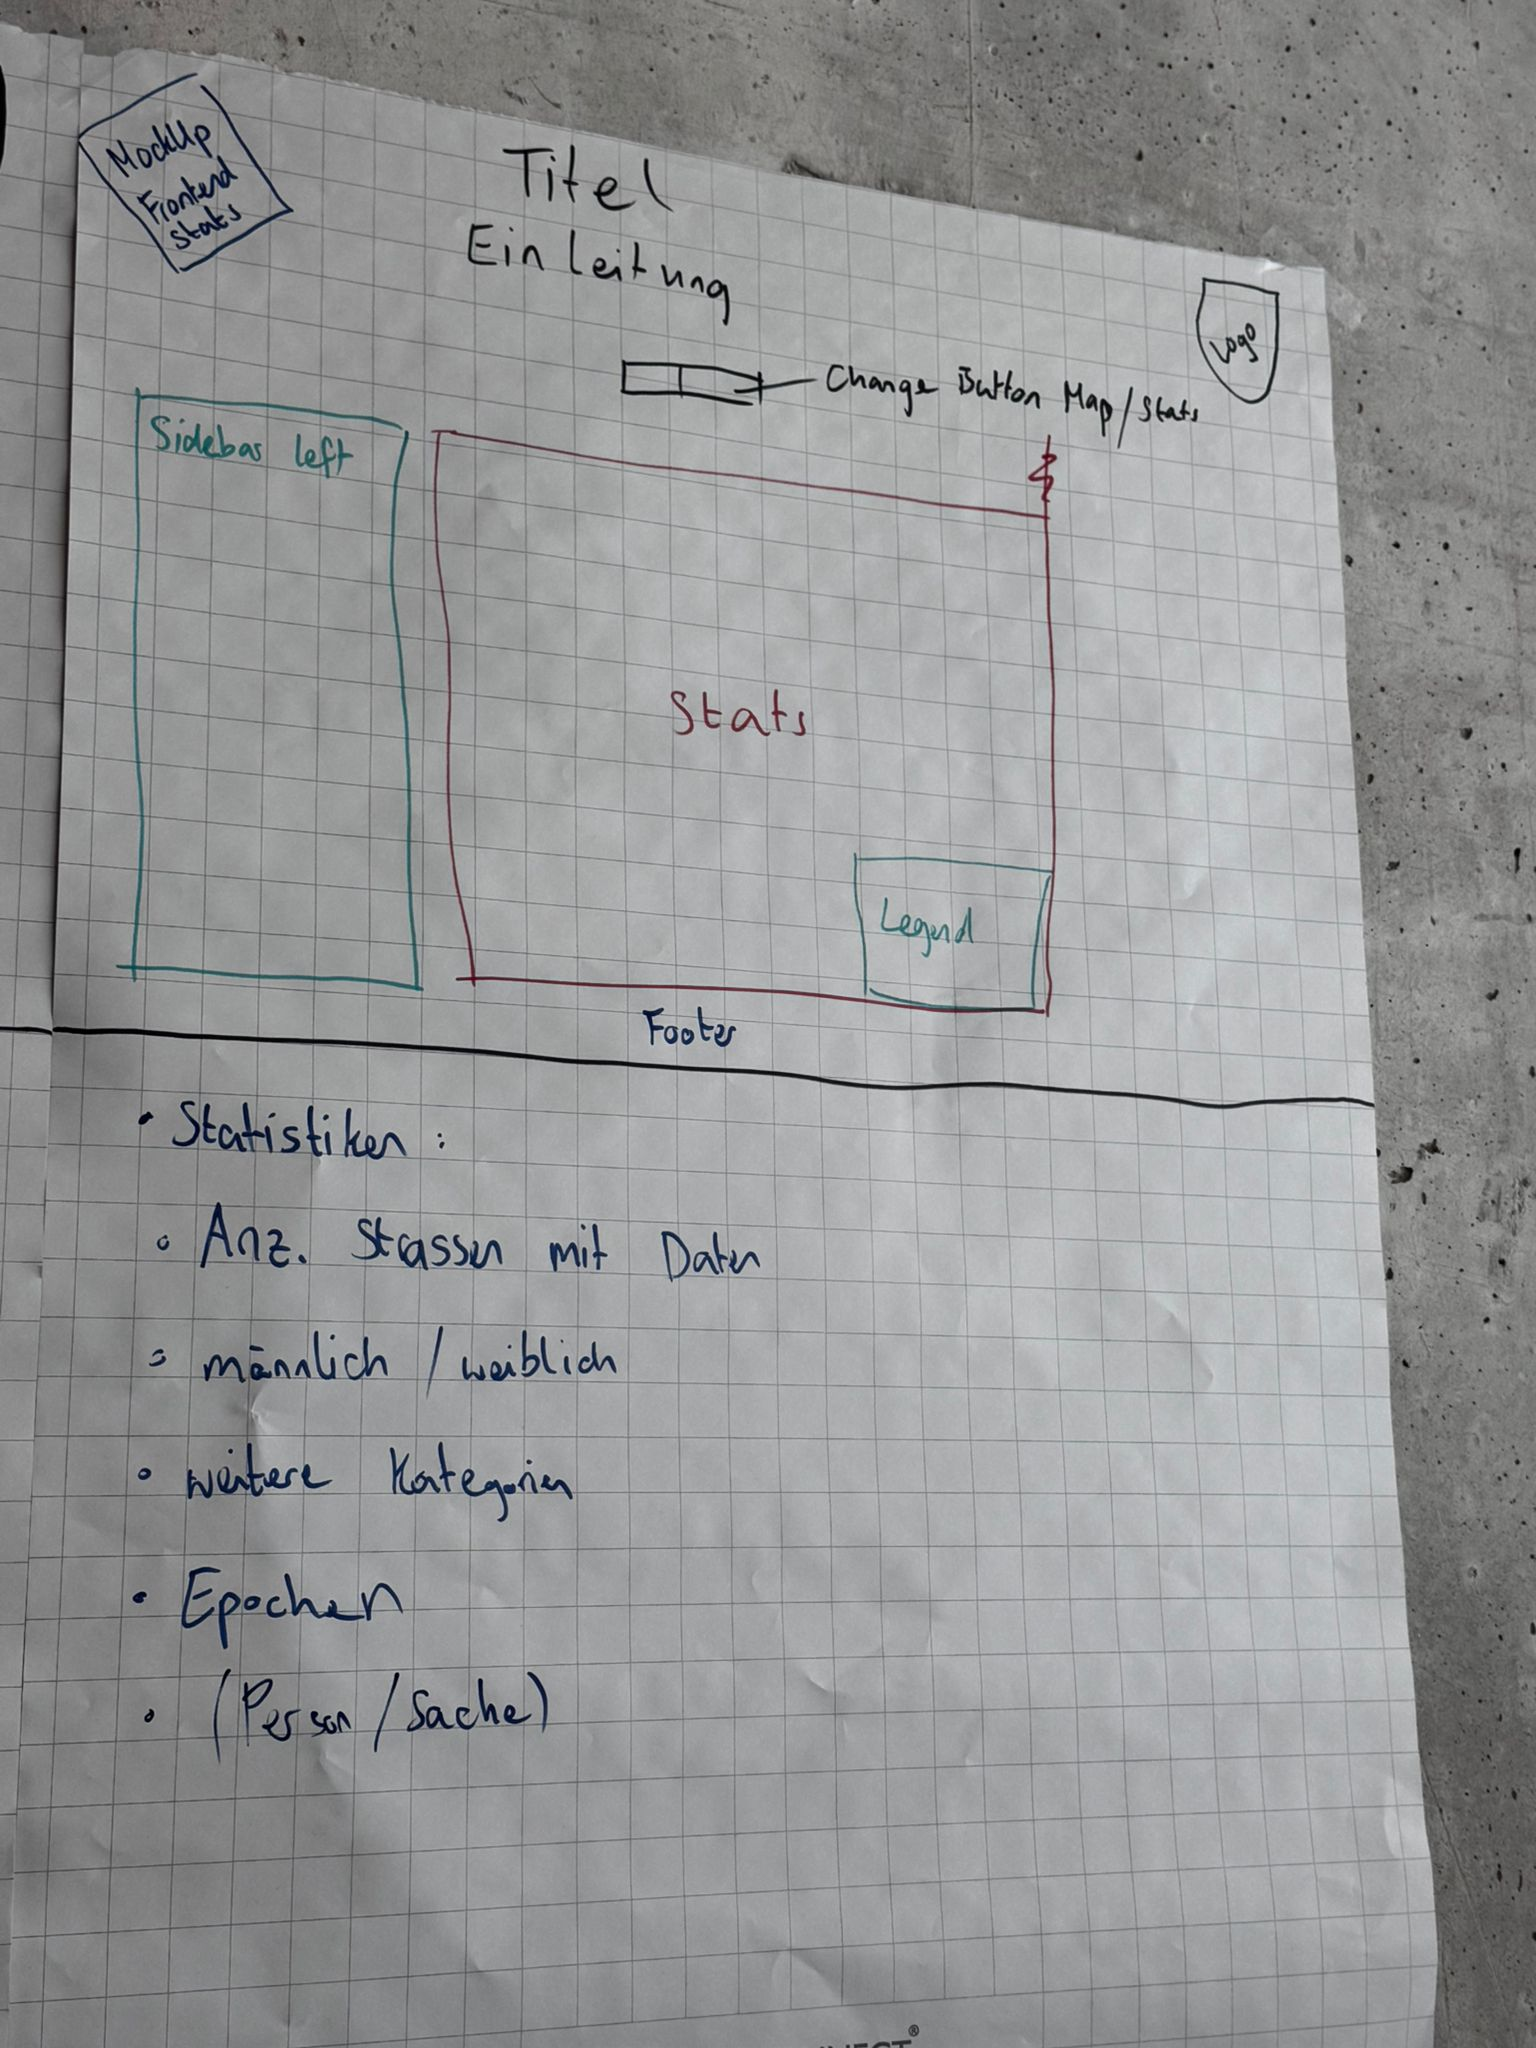 MockUp
Frontend
Stats
Titel
Einleitung
Logo
Change Button Map/Stats
Sidebar left
Stats
Legend
Footer
• Statistiken:
◦ Anz. Strassen mit Daten
◦ männlich / weiblich
◦ weitere Kategorien
• Epochen
◦ (Person / Sache)